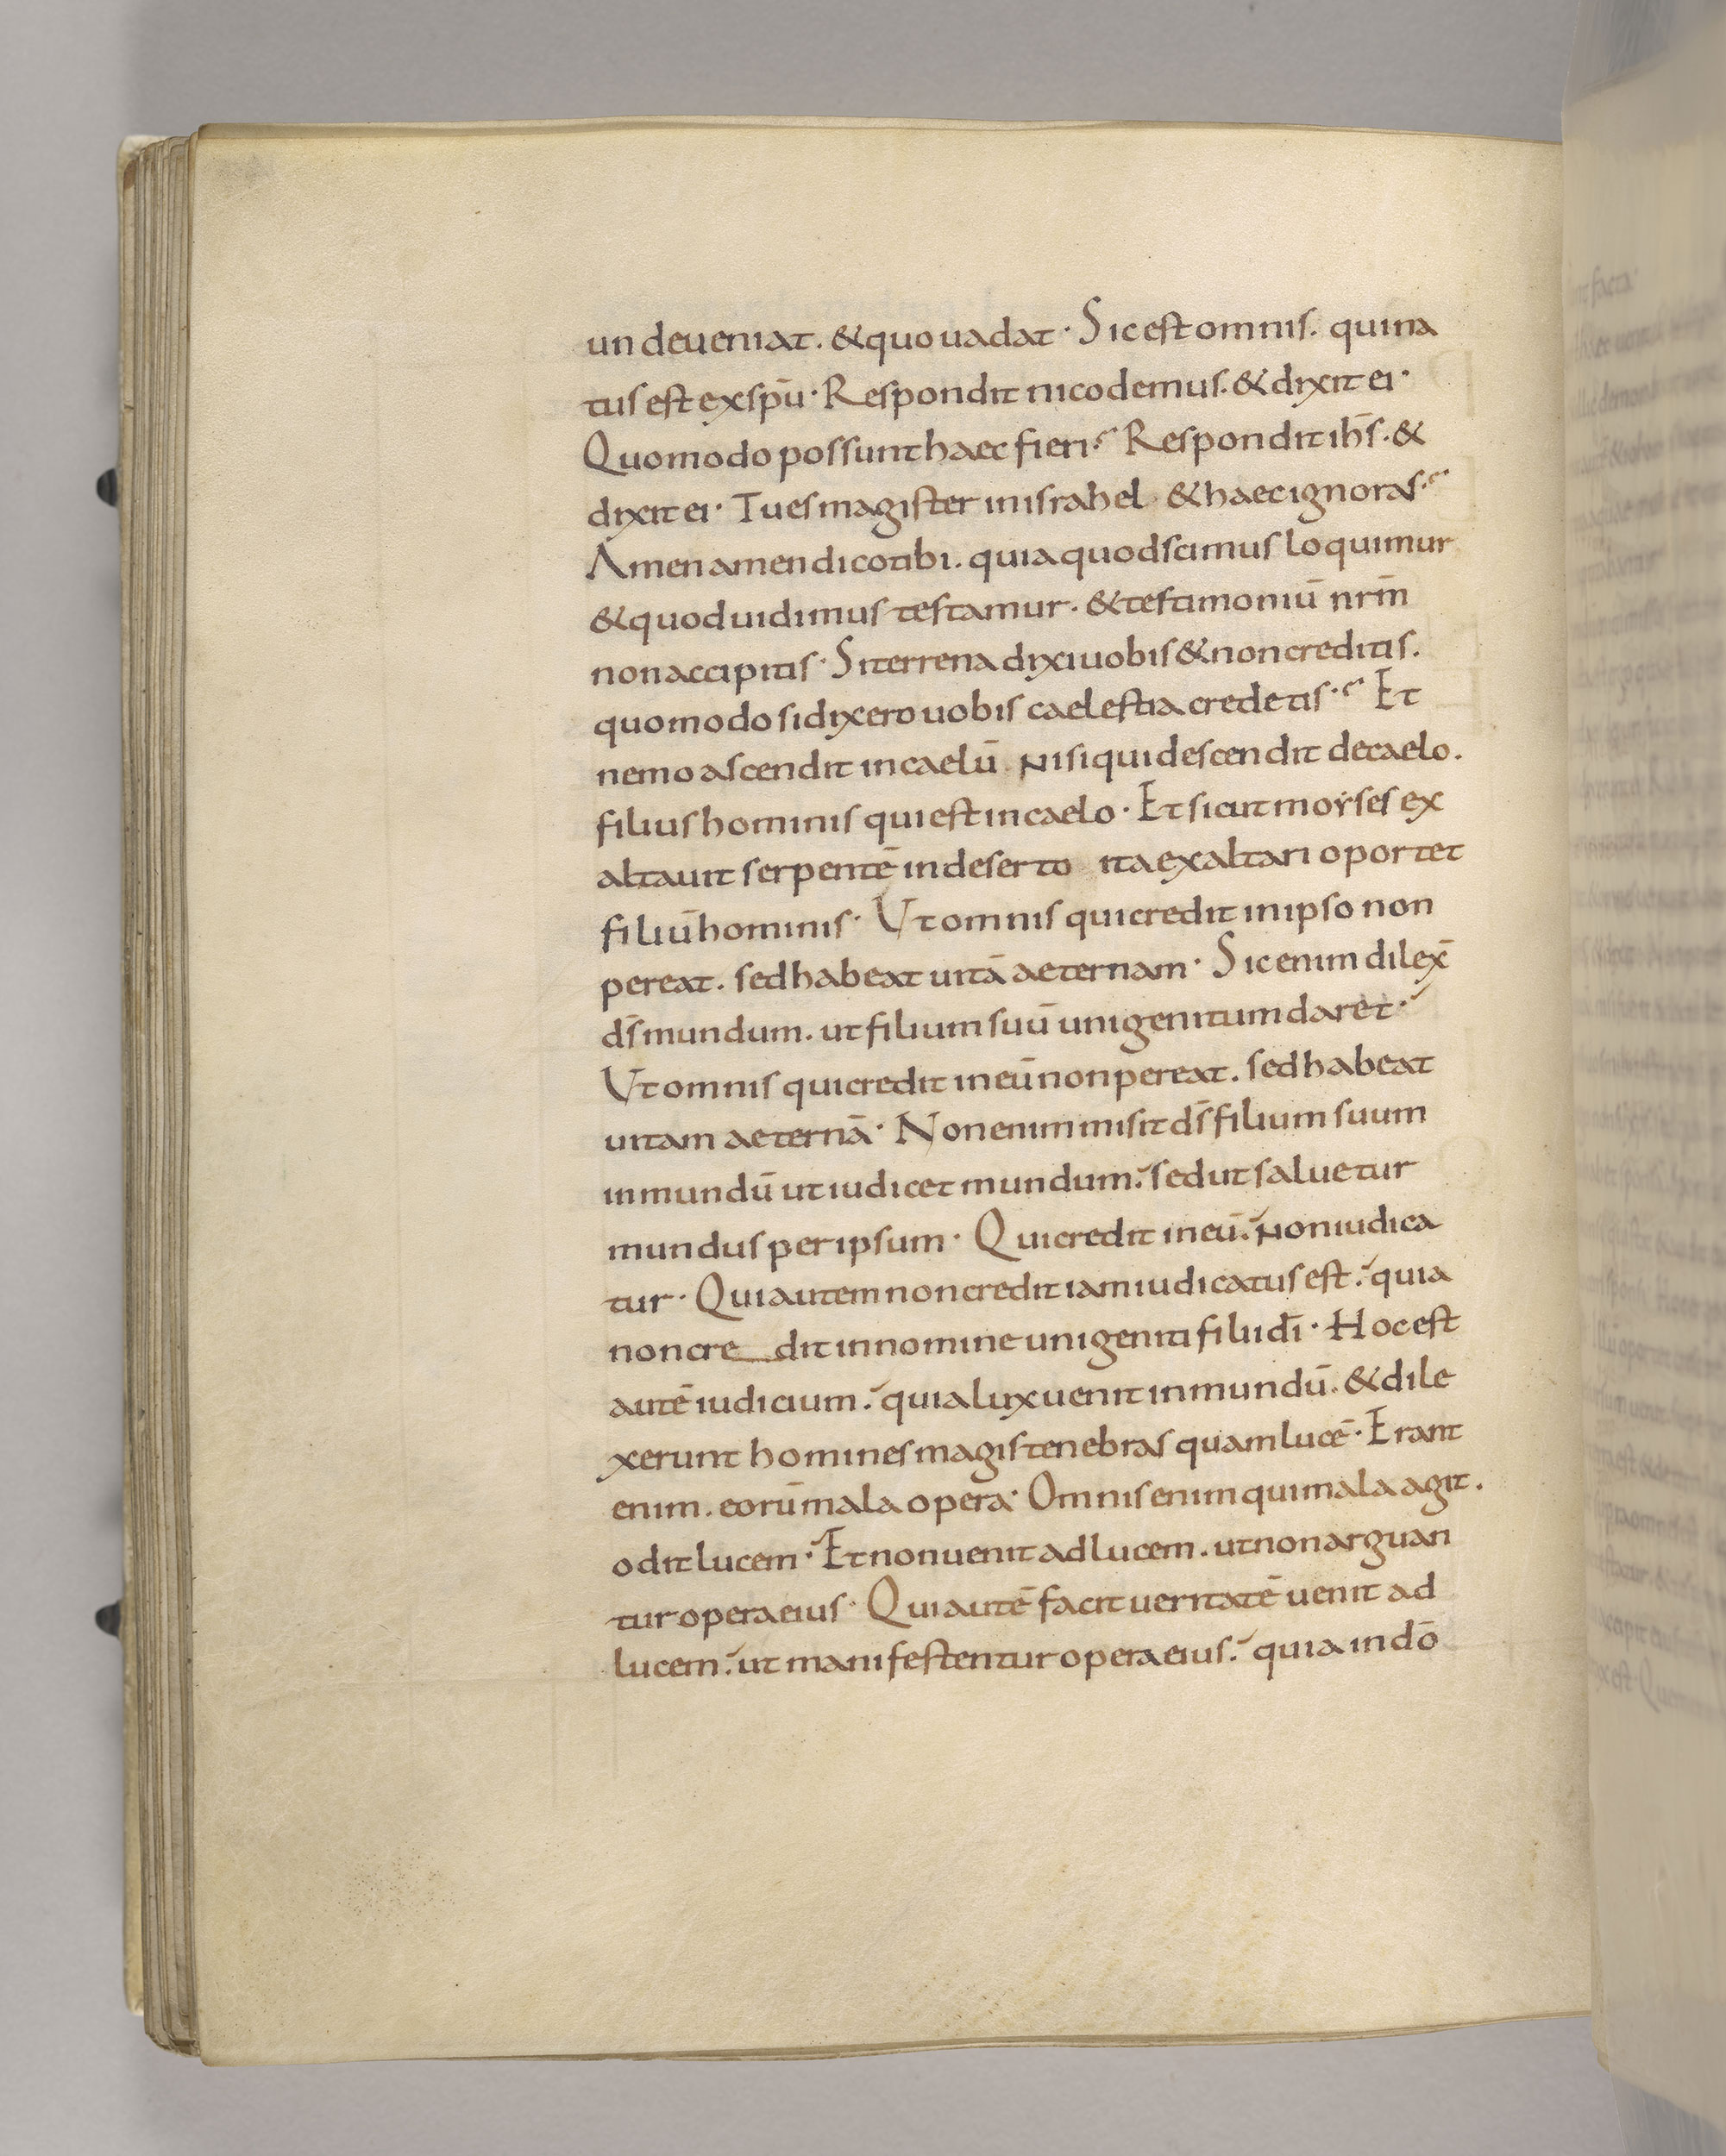 undeueniat. & quo uadat · Sic est omnis. qui na
tus est ex sp̄u · Respondit nicodemus. & dixit ei ·
Quomodo possunt haec fieri? Respondit ih̄s. &
dixit ei · Tu es magister in israhel · & haec ignoras?
Amen amen dico tibi. quia quod scimus loquimur
& quod uidimus testamur. & testimoniū nrm̄
non accipitis · Si terrena dixi uobis & non creditis.
quomodo si dixero uobis caelestia credetis? Et
nemo ascendit in caelū. nisi qui descendit de caelo.
filius hominis qui est in caelo · Et sicut moyses ex
altauit serpentē in deserto ita exaltari oportet
filiū hominis · Ut omnis qui credit in ipso non
pereat. sed habeat uitā aeternam · Sic enim dilex̄
ds̄ mundum. ut filium suū unigenitum daret ·
Ut omnis qui credit in eū non pereat. sed habeat
uitam aeternā · Non enim misit ds̄ filium suum
in mundū ut iudicet mundum. sed ut saluetur
mundus per ipsum · Qui credit in eū. non iudica
tur · Qui autem non credit iam iudicatus est. quia
non cre dit in nomine unigeniti filii dī · Hoc est
autē iudicium. quia lux uenit in mundū. & dile
xerunt homines magis tenebras quam lucē · Erant
enim. eorū mala opera · Omnis enim qui mala agit.
odit lucem · Et non uenit ad lucem. ut non arguan
tur opera eius · Qui autē facit ueritatē uenit ad
lucem. ut manifestentur opera eius. quia in dō